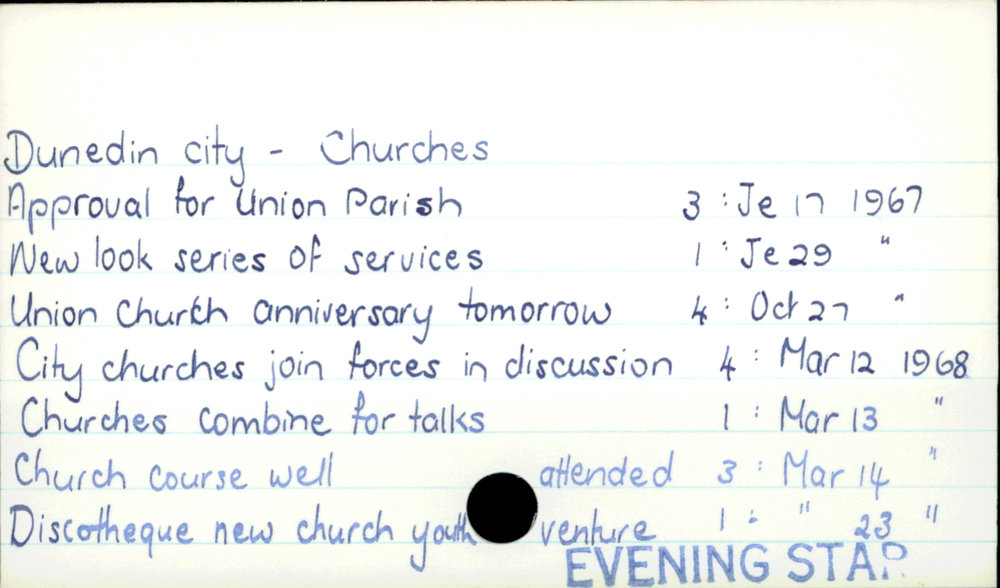 Dunedin city - Churches
Approval for Union Parish 3 : Je 17 1967
New look series of services 1 : Je 29 "
Union Church anniversary tomorrow 4 : Oct 27 "
City churches join forces in discussion 4 : Mar 12 1968
Churches combine for talks 1 : Mar 13 "
Church course well attended 3 : Mar 14 "
Discotheque new church youth venture 1 : " 23 "
EVENING STAR